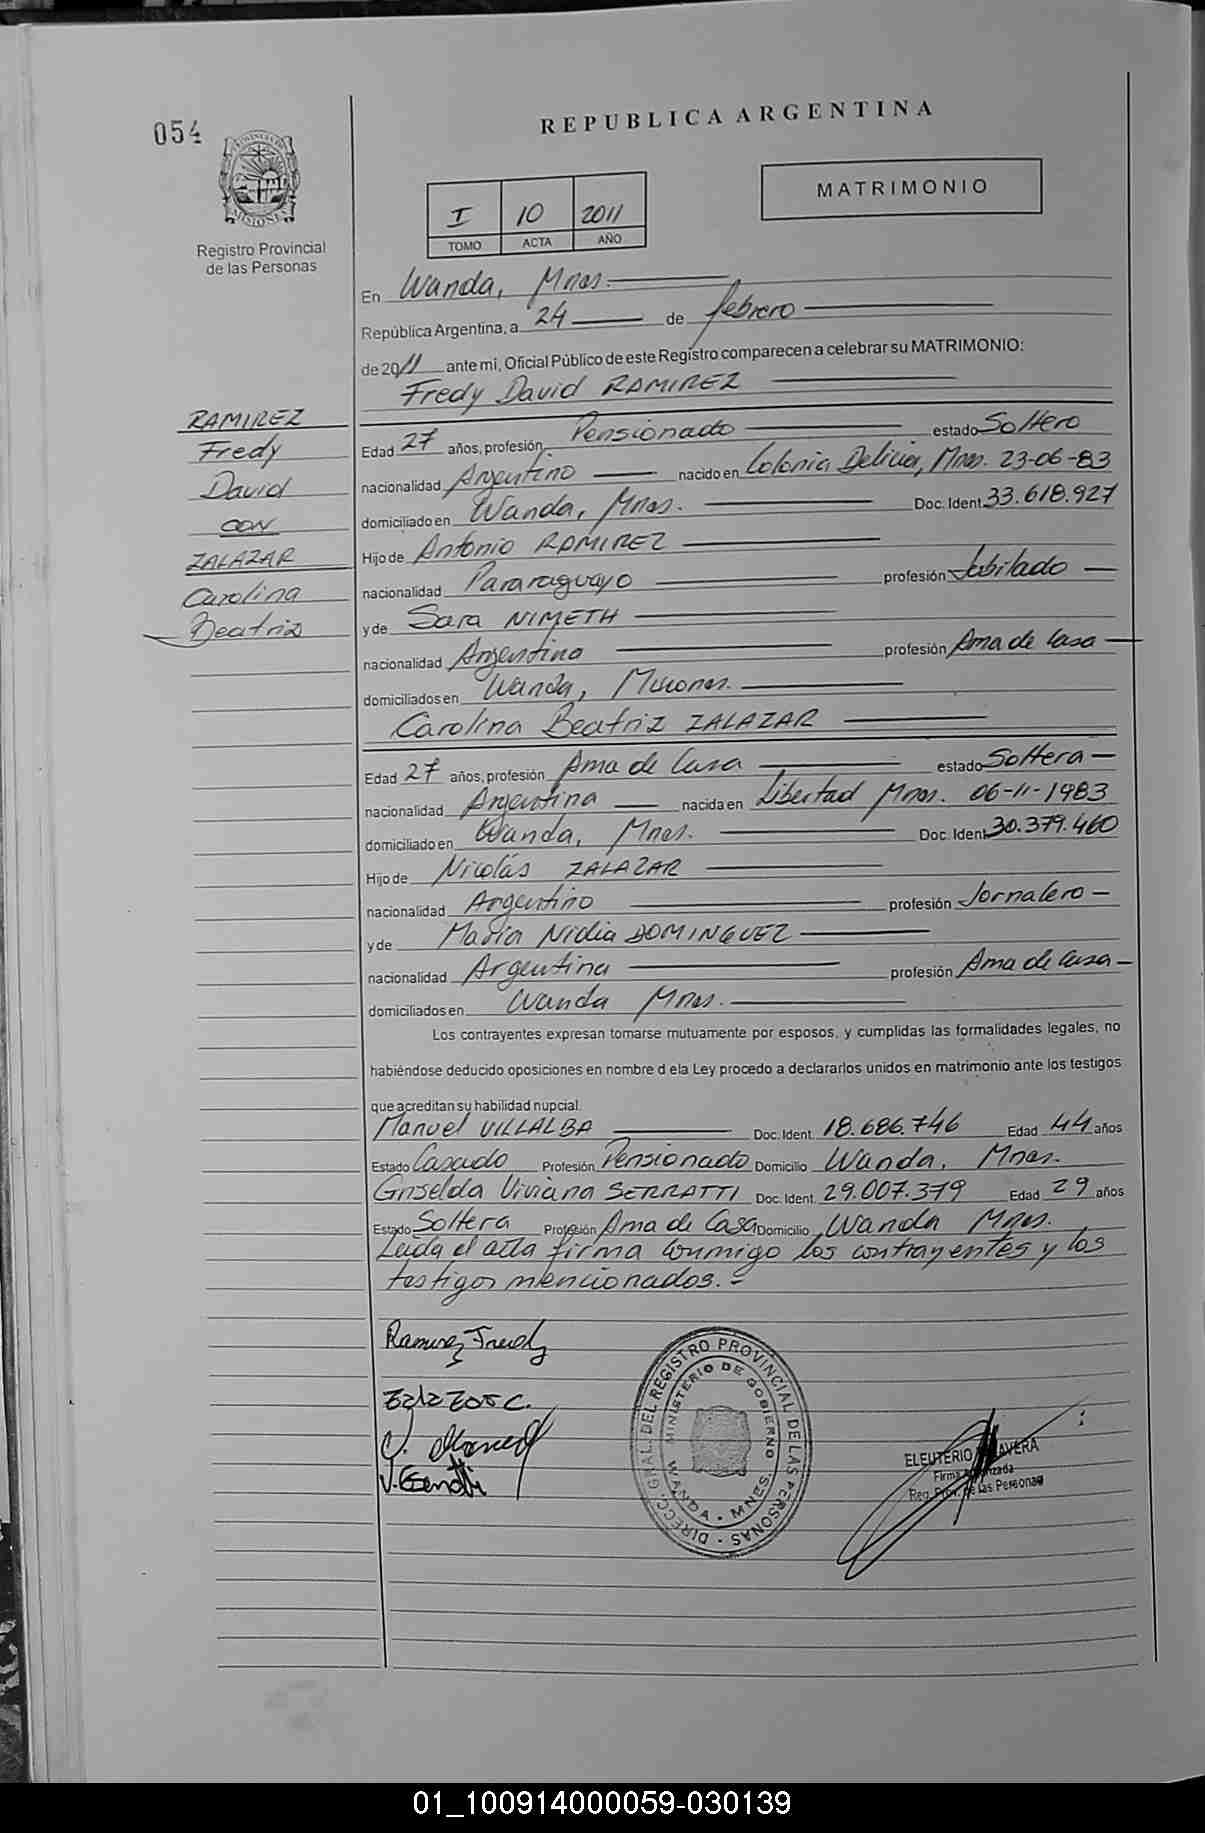 054
PROVINCIA DE
MISIONES
Registro Provincial
de las Personas
REPUBLICA ARGENTINA
MATRIMONIO
I 10 2011
TOMO ACTA AÑO
En Wanda, Mnes.
República Argentina, a 24 de febrero
de 2011 ante mi, Oficial Público de este Registro comparecen a celebrar su MATRIMONIO:
Fredy David RAMIREZ
RAMIREZ
Fredy
David
CON
ZALAZAR
Carolina
Beatriz
Edad 27 años, profesión Pensionado estado Soltero
nacionalidad Argentino nacido en Colonia Delicia, Mnes. 23-06-83
domiciliado en Wanda, Mnes. Doc. Ident. 33.618.927
Hijo de Antonio RAMIREZ
nacionalidad Pararaguayo profesión Jubilado
y de Sara NIMETH
nacionalidad Argentina profesión Ama de Casa
domiciliados en Wanda, Misiones.
Carolina Beatriz ZALAZAR
Edad 27 años, profesión Ama de Casa estado Soltera
nacionalidad Argentina nacida en Libertad Mnes. 06-11-1983
domiciliado en Wanda, Mnes. Doc. Ident. 30.379.460
Hijo de Nicolás ZALAZAR
nacionalidad Argentino profesión Jornalero
y de María Nidia DOMINGUEZ
nacionalidad Argentina profesión Ama de Casa
domiciliados en Wanda Mnes.
Los contrayentes expresan tomarse mutuamente por esposos, y cumplidas las formalidades legales, no
habiéndose deducido oposiciones en nombre d ela Ley procedo a declararlos unidos en matrimonio ante los testigos
que acreditan su habilidad nupcial.
Manuel VILLALBA Doc. Ident. 18.686.746 Edad 44 años
Estado Casado Profesión Pensionado Domicilio Wanda, Mnes.
Griselda Viviana SERRATTI Doc. Ident. 29.007.379 Edad 29 años
Estado Soltera Profesión Ama de Casa Domicilio Wanda Mnes.
Leida el acta firma conmigo los contrayentes y los
testigos mencionados.-
Ramirez Fredy
Zalazar C.
V. Manuel
DIRECC. GRAL. DEL REGISTRO PROVINCIAL DE LAS PERSONAS
MINISTERIO DE GOBIERNO
WANDA - MNES.
ELEUTERIO
Firma Autorizada
Reg. Prov. de las Personas
01_100914000059-030139